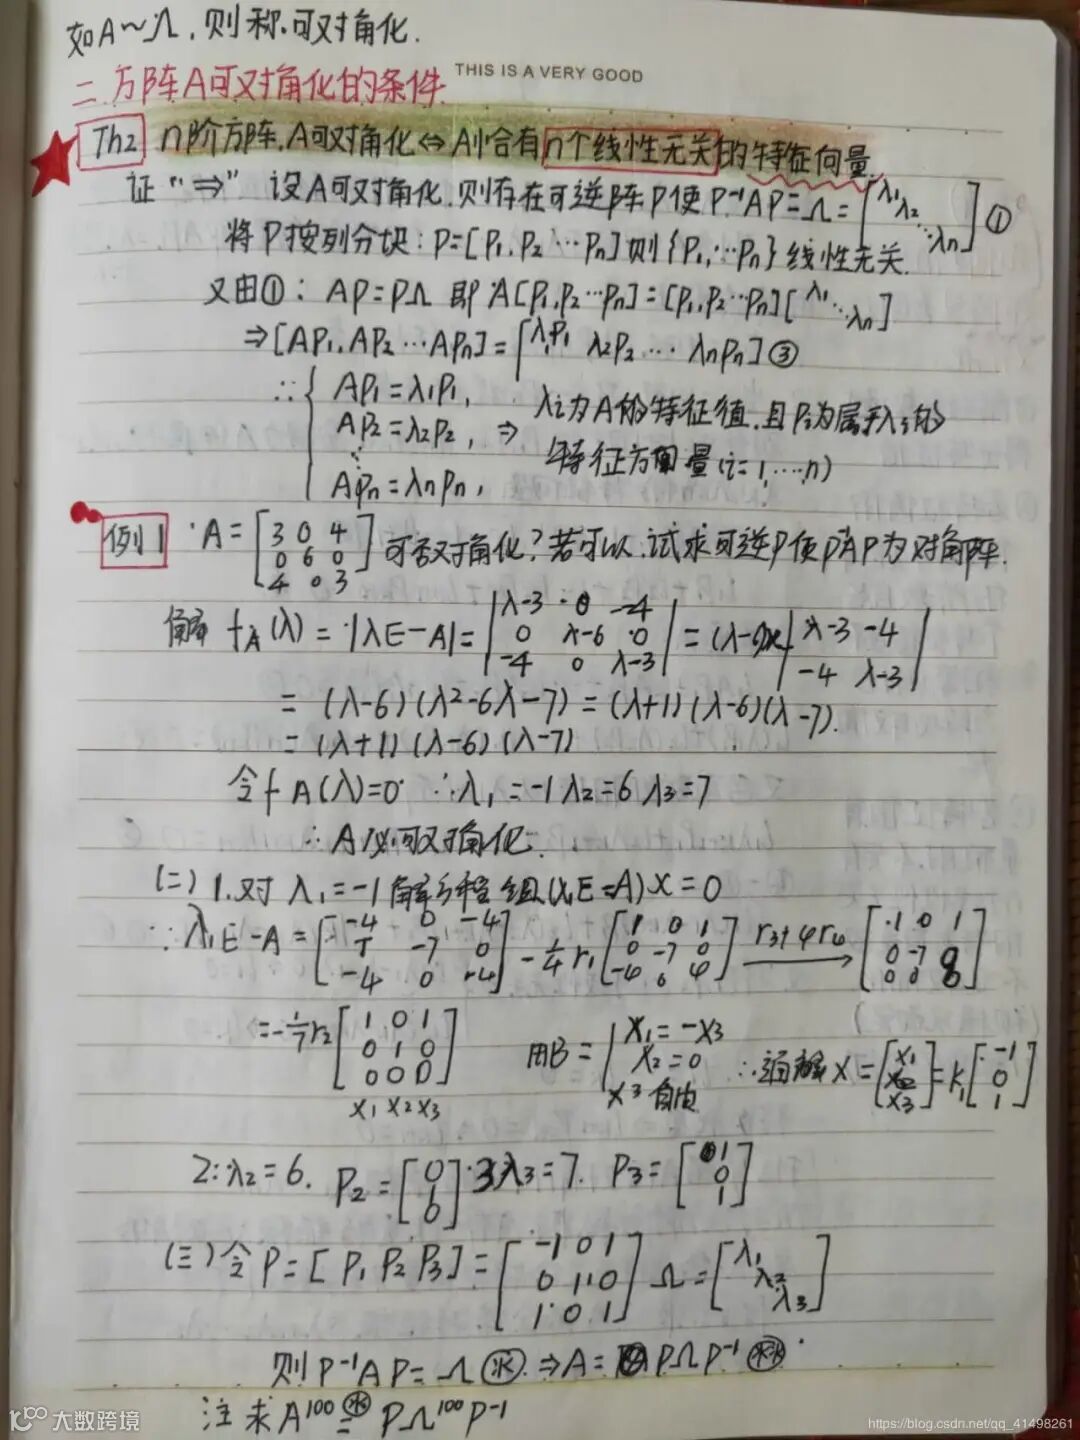 如A~Ω,则称可对角化.
THIS IS A VERY GOOD
二.方阵A可对角化的条件
Th2 n阶方阵.A可对角化⇔A恰有n个线性无关的特征向量.
证 "⇒" 设A可对角化.则存在可逆阵P使P⁻¹AP=Ω=[λ₁ λ₂ ⋱ λn]①
将P按列分块:P=[P₁,P₂⋯Pn]则{P₁,⋯Pn}线性无关.
又由①:AP=PΩ 即A[P₁,P₂⋯Pn]=[P₁,P₂⋯Pn][λ₁⋱λn]
⇒[AP₁,AP₂⋯APn]=[λ₁P₁ λ₂P₂⋯λnPn]③
∴{ AP₁=λ₁P₁,
AP₂=λ₂P₂, ⇒ λi为A的特征值.且Pi为属于λi的
⋮ 特征方向量(i=1,⋯n)
APn=λnPn,
例1 A=[3 0 4; 0 6 0; 4 0 3] 可否对角化?若可以.试求可逆P使P⁻¹AP为对角阵.
解 fA(λ)=|λE-A|=|λ-3 0 -4; 0 λ-6 0; -4 0 λ-3|=(λ-6)×|λ-3 -4; -4 λ-3|
=(λ-6)(λ²-6λ-7)=(λ+1)(λ-6)(λ-7).
=(λ+1)(λ-6)(λ-7)
令fA(λ)=0 ∴λ₁=-1 λ₂=6 λ₃=7
∴A必可对角化.
(二) 1.对λ₁=-1解方程组(λ₁E-A)X=0
∵λ₁E-A=[-4 0 -4; -7 0; -4 0 -4] -¼r₁[1 0 1; 0 -7 0; -4 0 4] r₃+4r₁→[1 0 1; 0 -7 0; 0 0 0]
=-1/7r₂[1 0 1; 0 1 0; 0 0 0] 用B={x₁=-x₃ x₂=0 x₃自由 ∴通解X=[x₁ x₂ x₃]=k₁[-1 0 1]
x₁ x₂ x₃
2:λ₂=6. P₂=[0 1 0].3λ₃=7. P₃=[1 0 1]
(三)令P=[P₁ P₂ P₃]=[-1 0 1; 0 1 0; 1 0 1] Ω=[λ₁ λ₂ λ₃]
则P⁻¹AP=Ω(※)⇒A=PΩP⁻¹(※※)
注 求A¹⁰⁰=(※)PΩ¹⁰⁰P⁻¹
大数跨境
https://blog.csdn.net/qq_41498261